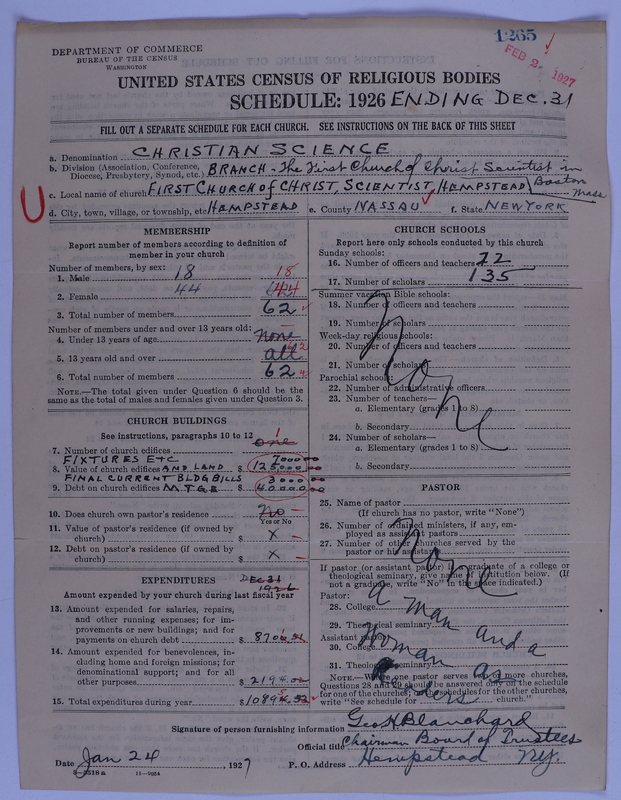 1265
FEB 2 - 1927
DEPARTMENT OF COMMERCE
BUREAU OF THE CENSUS
WASHINGTON
UNITED STATES CENSUS OF RELIGIOUS BODIES
SCHEDULE: 1926 ENDING DEC. 31
FILL OUT A SEPARATE SCHEDULE FOR EACH CHURCH. SEE INSTRUCTIONS ON THE BACK OF THIS SHEET
a. Denomination CHRISTIAN SCIENCE
b. Division (Association, Conference, Diocese, Presbytery, Synod, etc.) BRANCH - The First Church of Christ Scientist in Boston Mass
c. Local name of church FIRST CHURCH of CHRIST, SCIENTIST, HEMPSTEAD
d. City, town, village, or township, etc HEMPSTEAD e. County NASSAU f. State NEW YORK
U
MEMBERSHIP
Report number of members according to definition of
member in your church
Number of members by sex:
1. Male 18 18
2. Female 44 44
3. Total number of members 62
Number of members under and over 13 years old:
4. Under 13 years of age none
5. 13 years old and over all 62
6. Total number of members 62
NOTE.—The total given under Question 6 should be the
same as the total of males and females given under Question 3.
CHURCH BUILDINGS
See instructions, paragraphs 10 to 12
7. Number of church edifices one 1
FIXTURES ETC 7000 00
8. Value of church edifices AND LAND $ 125,000 00
FINAL CURRENT BLDG BILLS 3000 00
9. Debt on church edifices MTGE $ 40000 00
10. Does church own pastor's residence No
Yes or No
11. Value of pastor's residence (if owned by
church) $ X
12. Debt on pastor's residence (if owned by
church) $ X
EXPENDITURES DEC 31 1926
Amount expended by your church during last fiscal year
13. Amount expended for salaries, repairs,
and other running expenses; for im-
provements or new buildings; and for
payments on church debt $
14. Amount expended for benevolences, in-
cluding home and foreign missions; for
denominational support; and for all
other purposes $
15. Total expenditures during year $
CHURCH SCHOOLS
Report here only schools conducted by this church
Sunday schools:
16. Number of officers and teachers 22
17. Number of scholars 135
Summer vacation Bible schools:
18. Number of officers and teachers
19. Number of scholars
Week-day religious schools:
20. Number of officers and teachers
21. Number of scholars
Parochial schools:
22. Number of administrative officers
23. Number of teachers—
a. Elementary (grades 1 to 8)
b. Secondary
24. Number of scholars—
a. Elementary (grades 1 to 8)
b. Secondary
None
PASTOR
25. Name of pastor
(If church has no pastor, write "None")
26. Number of ordained ministers, if any, em-
ployed as assistant pastors
27. Number of other churches served by the
pastor or his assistant
If pastor (or assistant pastor) is a graduate of a college or
theological seminary, give name of institution below. (If
not a graduate, write "No" in the space indicated.)
Pastor:
28. College
29. Theological seminary
Assistant pastor:
30. College
31. Theological seminary
NOTE.—Where one pastor serves two or more churches,
Questions 28 and 29 should be answered only on the schedule
for one of the churches; on schedules for the other churches,
write "See schedule for church."
None
a man and a
Woman as
Readers
Signature of person furnishing information Geo H Blanchard
Official title Chairman Board of Trustees
Date Jan 24, 1927 P. O. Address Hempstead NY.
8—2318a 11—8064